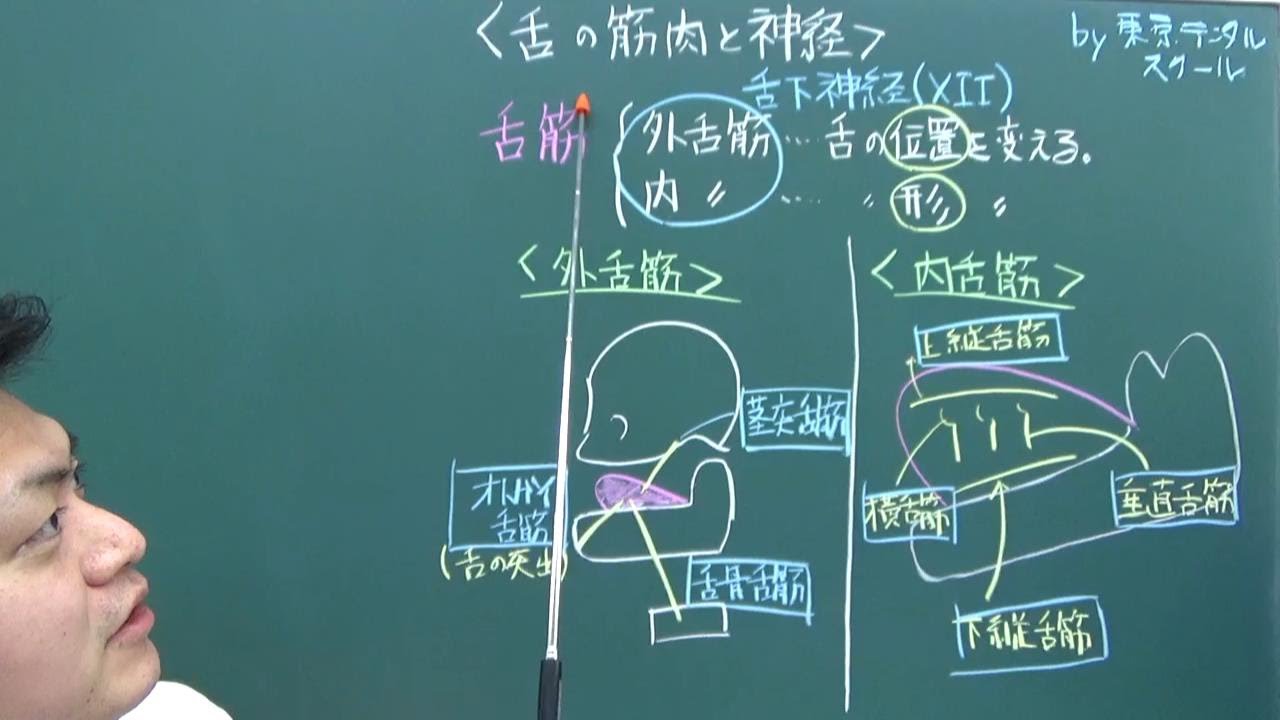 <舌の筋肉と神経>
by 東京デンタル
スクール
舌下神経(XII)
舌筋
外舌筋…舌の位置を変える。
内 〃 … 〃 形 〃
<外舌筋>
<内舌筋>
上縦舌筋
茎突舌筋
オトガイ
舌筋
(舌の突出)
横舌筋
垂直舌筋
舌骨舌筋
下縦舌筋